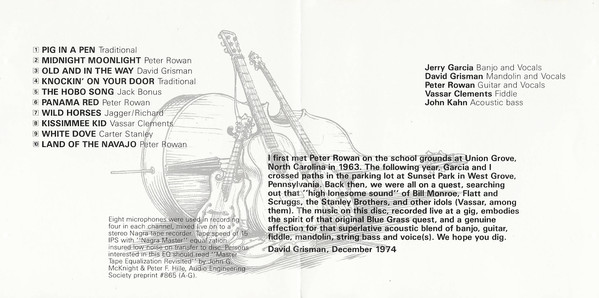 1 PIG IN A PEN Traditional
2 MIDNIGHT MOONLIGHT Peter Rowan
3 OLD AND IN THE WAY David Grisman
4 KNOCKIN' ON YOUR DOOR Traditional
5 THE HOBO SONG Jack Bonus
6 PANAMA RED Peter Rowan
7 WILD HORSES Jagger/Richard
8 KISSIMMEE KID Vassar Clements
9 WHITE DOVE Carter Stanley
10 LAND OF THE NAVAJO Peter Rowan
Eight microphones were used in recording—
four in each channel, mixed live on to a
stereo Nagra tape recorder. Tape speed of 15
IPS with "Nagra Master" equalization
insured low noise on transfer to disc. Persons
interested in this EQ should read "Master
Tape Equalization Revisited" by John G.
McKnight & Peter F. Hille, Audio Engineering
Society preprint #865 (A-G).
Jerry Garcia Banjo and Vocals
David Grisman Mandolin and Vocals
Peter Rowan Guitar and Vocals
Vassar Clements Fiddle
John Kahn Acoustic bass
I first met Peter Rowan on the school grounds at Union Grove,
North Carolina in 1963. The following year, Garcia and I
crossed paths in the parking lot at Sunset Park in West Grove,
Pennsylvania. Back then, we were all on a quest, searching
out that "high lonesome sound" of Bill Monroe, Flatt and
Scruggs, the Stanley Brothers, and other idols (Vassar, among
them). The music on this disc, recorded live at a gig, embodies
the spirit of that original Blue Grass quest, and a genuine
affection for that superlative acoustic blend of banjo, guitar,
fiddle, mandolin, string bass and voice(s). We hope you dig.
David Grisman, December 1974